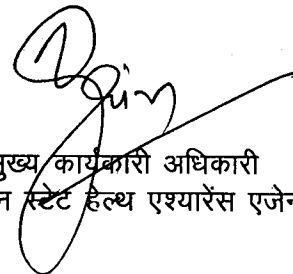 मुख्य कार्यकारी अधिकारी
न स्टेट हेल्थ एश्यारेंस एजेन